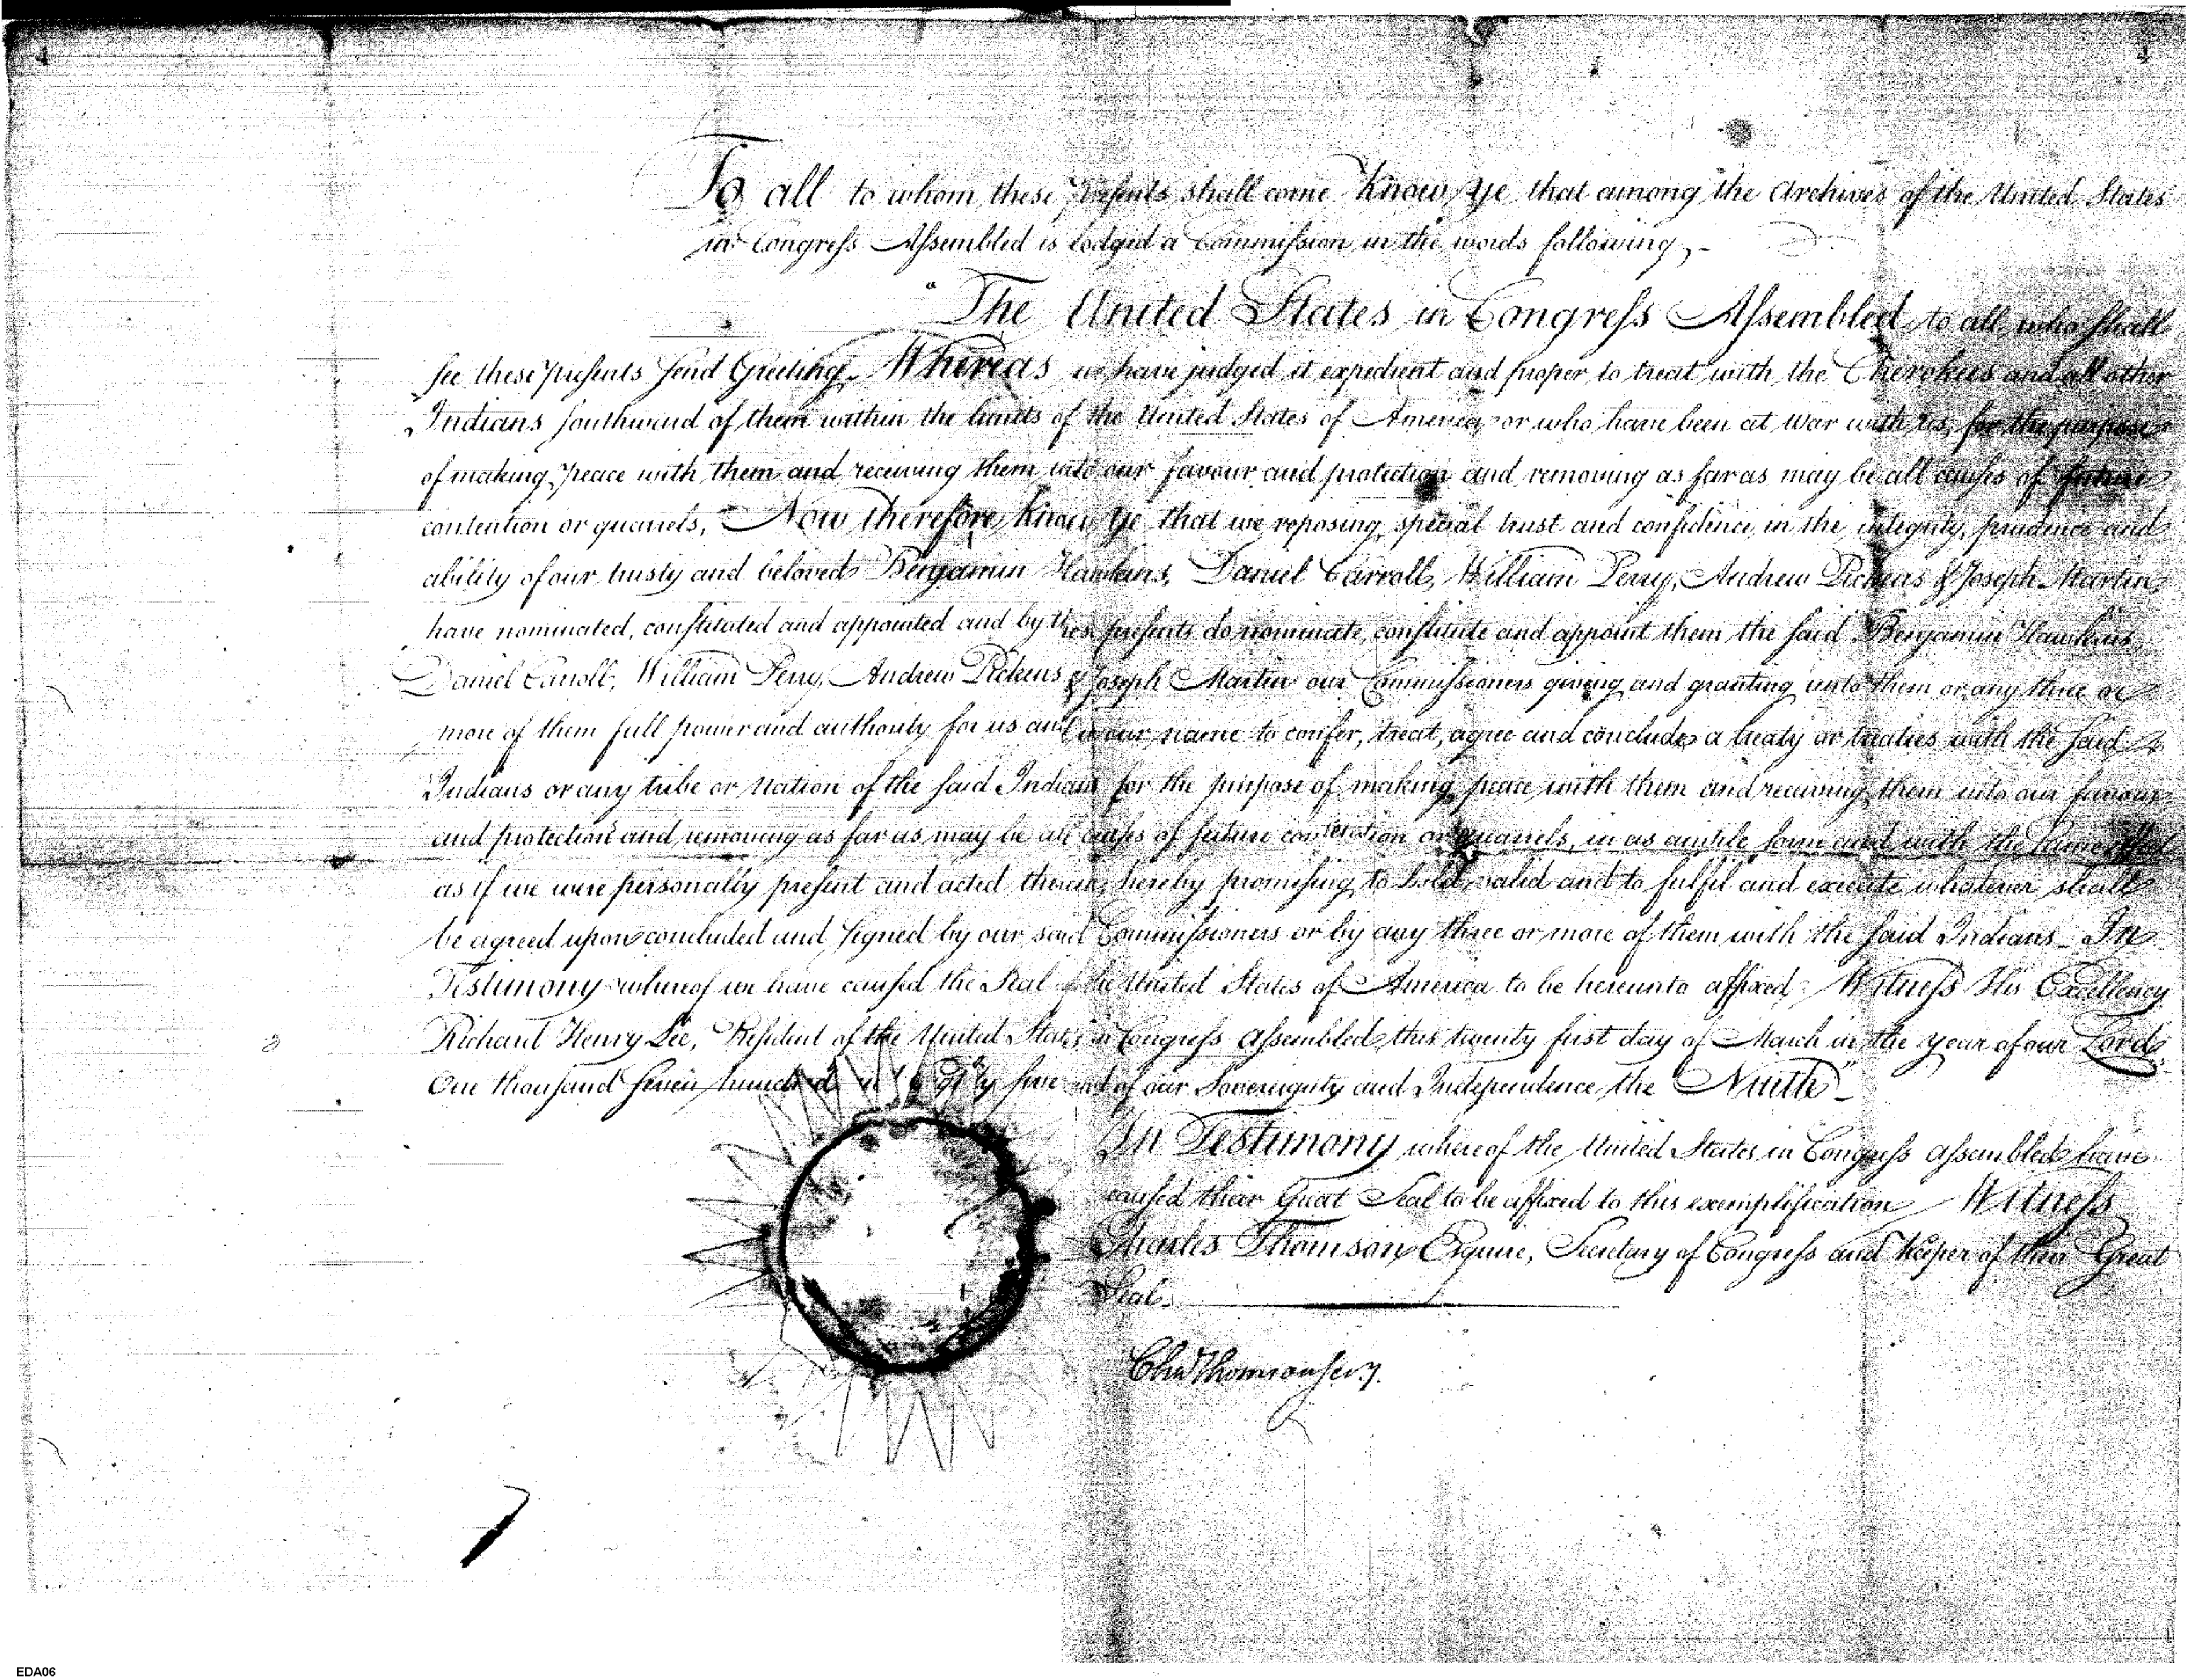 4
4
To all to whom these Presents shall come Know ye that among the Archives of the United States
in Congress Assembled is lodged a Commission in the words following, -
"The United States in Congress Assembled to all who shall
see these presents send Greeting. Whereas we have judged it expedient and proper to treat with the Cherokees and all other
Indians southward of them within the limits of the United States of America, or who have been at war with us, for the purpose
of making peace with them and receiving them into our favour and protection and removing as far as may be all causes of future
contention or quarrels, Now therefore know ye that we reposing special trust and confidence in the integrity, prudence and
ability of our trusty and beloved Benjamin Hawkins, Daniel Carroll, William Perry, Andrew Pickens & Joseph Martin,
have nominated, constituted and appointed and by these presents do nominate, constitute and appoint them the said Benjamin Hawkins
Daniel Carroll, William Perry, Andrew Pickens & Joseph Martin our Commissioners giving and granting unto them or any three or
more of them full power and authority for us and in our name to confer, treat, agree and conclude a treaty or treaties with the said
Indians or any tribe or Nation of the said Indians for the purpose of making peace with them and receiving them into our favour
and protection and removing as far as may be all causes of future contention or quarrels, in as ample form and with the same effect
as if we were personally present and acted therein, hereby promising to hold valid and to fulfil and execute whatever shall
be agreed upon concluded and signed by our said Commissioners or by any three or more of them with the said Indians. In
Testimony whereof we have caused the Seal of the United States of America to be hereunto affixed. Witness His Excellency
Richard Henry Lee, President of the United States in Congress Assembled, this twenty first day of March in the year of our Lord
One thousand seven hundred and Eighty five and of our Sovereignty and Independence the Ninth"
In Testimony whereof the United States in Congress assembled have
caused their Great Seal to be affixed to this exemplification Witness
Charles Thomson Esquire, Secretary of Congress and Keeper of their Great
Seal.
Chas Thomson Secy.
EDA06